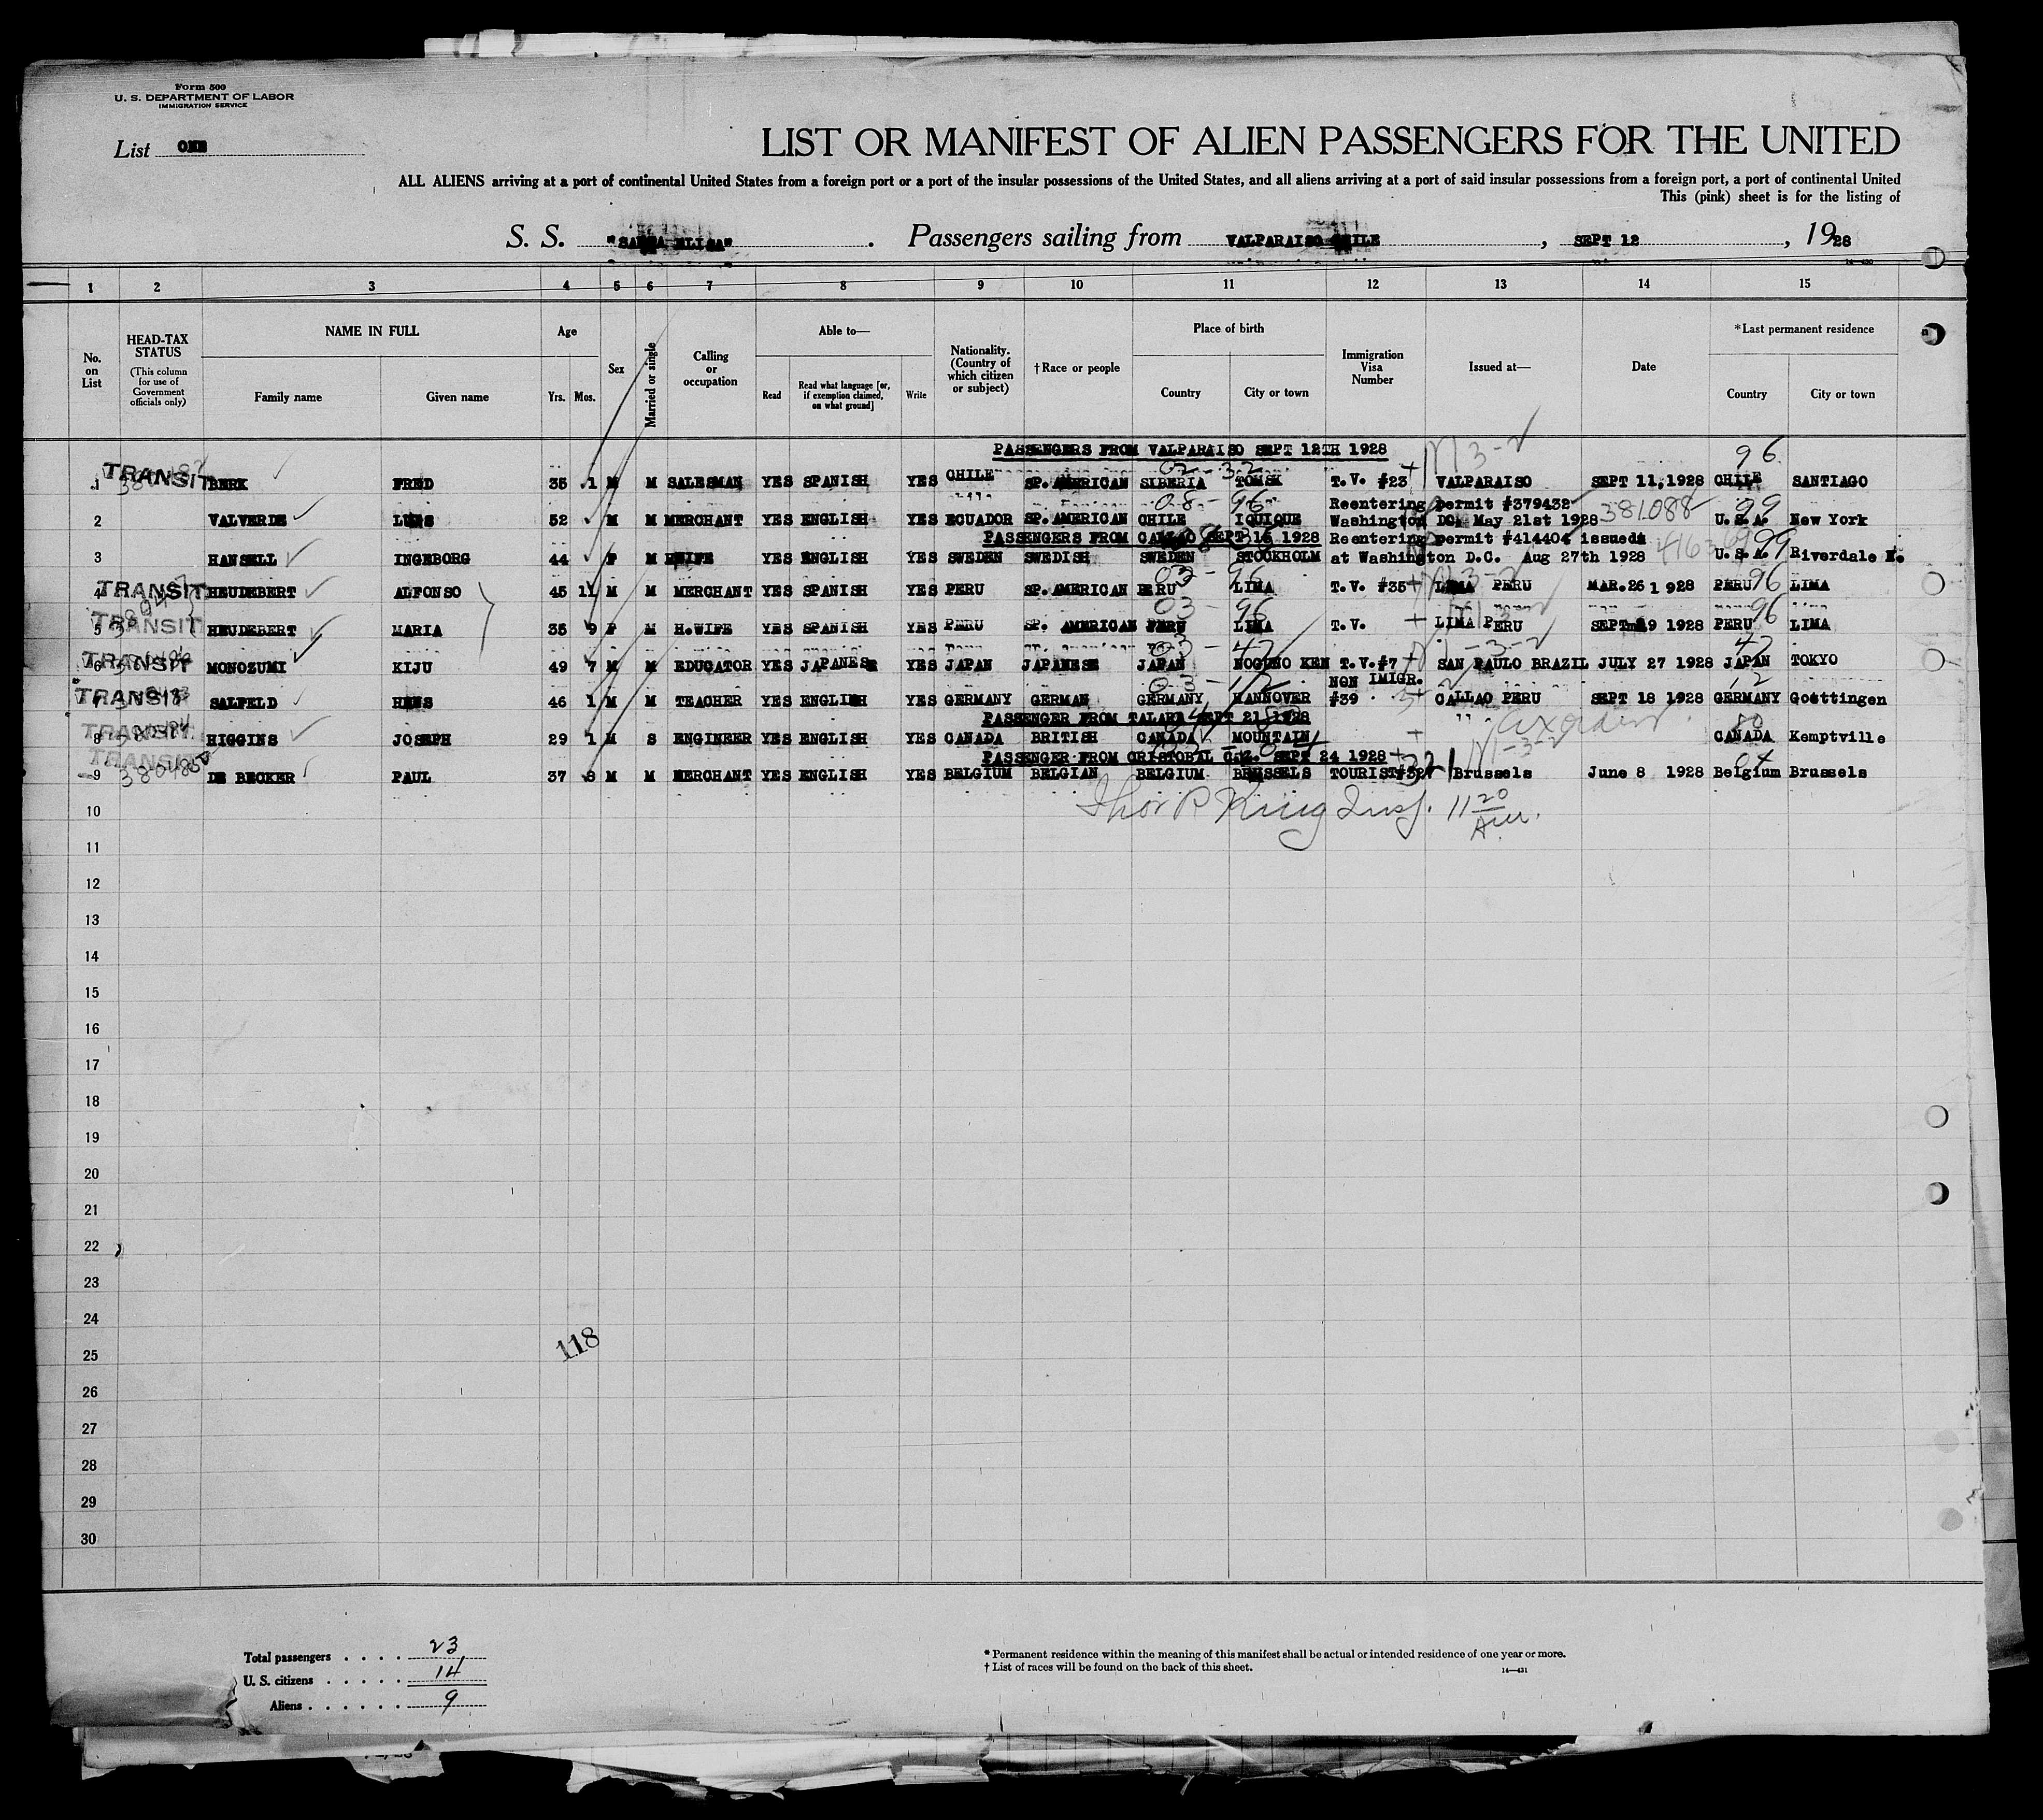 Form 500
U. S. DEPARTMENT OF LABOR
IMMIGRATION SERVICE
List ONE
LIST OR MANIFEST OF ALIEN PASSENGERS FOR THE UNITED
ALL ALIENS arriving at a port of continental United States from a foreign port or a port of the insular possessions of the United States, and all aliens arriving at a port of said insular possessions from a foreign port, a port of continental United
This (pink) sheet is for the listing of
S. S. "SANTA ELISA". Passengers sailing from VALPARAISO CHILE, SEPT 12, 1928
1 2 3 4 5 6 7 8 9 10 11 12 13 14 15
No. on List
HEAD-TAX STATUS (This column for use of Government officials only)
NAME IN FULL Family name Given name
Age Yrs. Mos.
Sex
Married or single
Calling or occupation
Able to— Read Read what language [or, if exemption claimed, on what ground] Write
Nationality. (Country of which citizen or subject)
†Race or people
Place of birth Country City or town
Immigration Visa Number
Issued at—
Date
*Last permanent residence Country City or town
PASSENGERS FROM VALPARAISO SEPT 12TH 1928
96
02-32
1 TRANSIT BERK FRED 35 1 M M SALESMAN YES SPANISH YES CHILE SP. AMERICAN SIBERIA TOMSK T.V. #23 VALPARAISO SEPT 11,1928 CHILE SANTIAGO
08-96 Reentering permit #379432 381088 99
2 VALVERDE LUIS 52 M M MERCHANT YES ENGLISH YES ECUADOR SP. AMERICAN CHILE IQUIQUE Washington DC. May 21st 1928 U.S.A. New York
PASSENGERS FROM CALLAO SEPT 16 1928 Reentering permit #414404 issued 99
3 HANSELL INGEBORG 44 F M HWIFE YES ENGLISH YES SWEDEN SWEDISH SWEDEN STOCKHOLM at Washington D.C. Aug 27th 1928 U.S.A. Riverdale
03-96 96
4 TRANSIT HEUDEBERT ALFONSO 45 11 M M MERCHANT YES SPANISH YES PERU SP. AMERICAN PERU LIMA T.V. #35 LIMA PERU MAR.26 1928 PERU LIMA
03-96 96
5 TRANSIT HEUDEBERT MARIA 35 9 F M H.WIFE YES SPANISH YES PERU SP. AMERICAN PERU LIMA T.V. LIMA PERU SEPT 19 1928 PERU LIMA
03-47 47
6 TRANSIT MONOZUMI KIJU 49 7 M M EDUCATOR YES JAPANESE YES JAPAN JAPANESE JAPAN NOGUNO KEN T.V.#7 SAN PAULO BRAZIL JULY 27 1928 JAPAN TOKYO
03-12 NON IMIGR. 12
7 TRANSIT SALFELD HENS 46 1 M M TEACHER YES ENGLISH YES GERMANY GERMAN GERMANY HANNOVER #39 CALLAO PERU SEPT 18 1928 GERMANY Goettingen
PASSENGER FROM TALARA SEPT 21 1928 80
8 TRANSIT HIGGINS JOSEPH 29 1 M S ENGINEER YES ENGLISH YES CANADA BRITISH CANADA MOUNTAIN CANADA Kemptville
PASSENGER FROM CRISTOBAL C.Z. SEPT 24 1928 04
9 TRANSIT 380485 DE BECKER PAUL 37 8 M M MERCHANT YES ENGLISH YES BELGIUM BELGIAN BELGIUM BRUSSELS TOURIST 321 Brussels June 8 1928 Belgium Brussels
10 Thor P King Insp. 11 20 Am.
11
12
13
14
15
16
17
18
19
20
21
22
23
24
118
25
26
27
28
29
30
Total passengers . . . . 23
U. S. citizens . . . . . 14
Aliens . . . . . . 9
* Permanent residence within the meaning of this manifest shall be actual or intended residence of one year or more.
† List of races will be found on the back of this sheet. 14—431